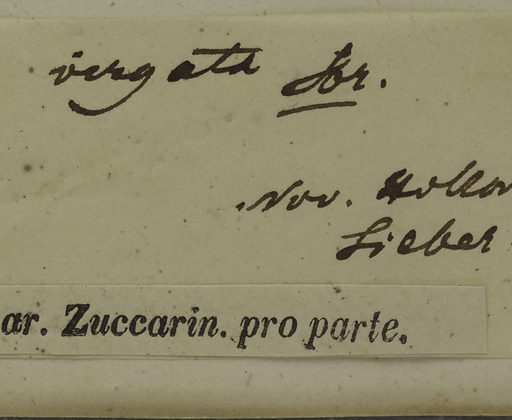 virgata Hbr.
Nov. Hollan
Sieber
ar. Zuccarin. pro parte.